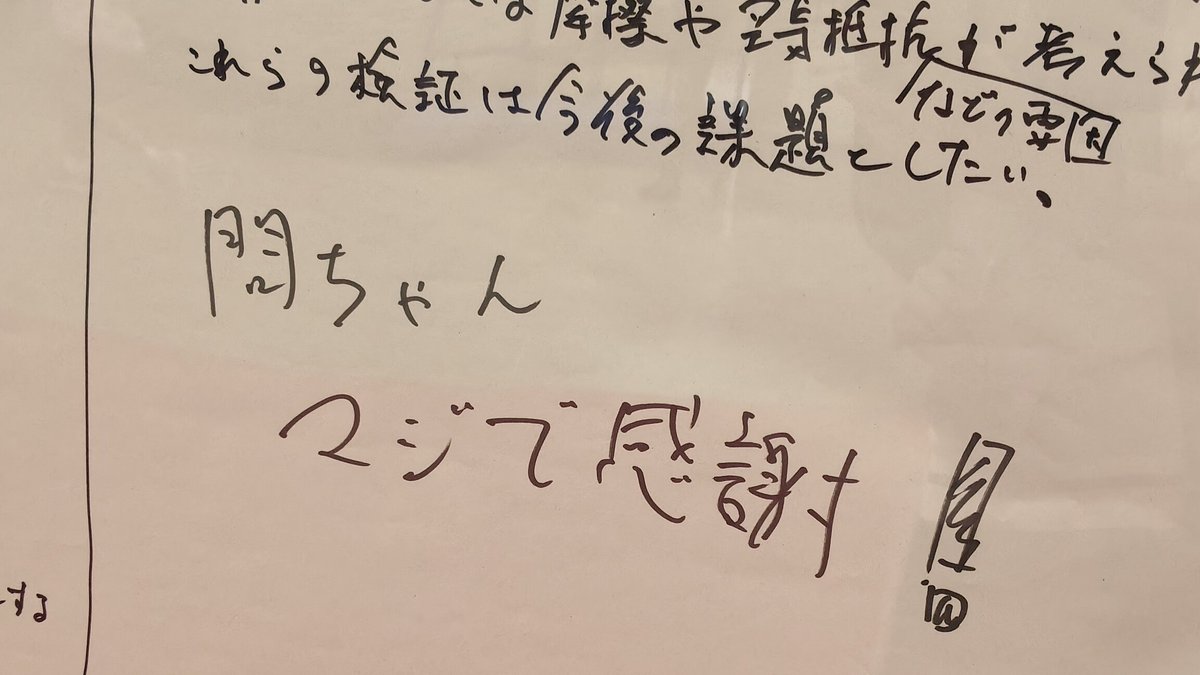 は摩擦や空気抵抗が考えられ
などの要因
これらの検証は今後の課題としたい。
問ちゃん
マジで感謝!
する